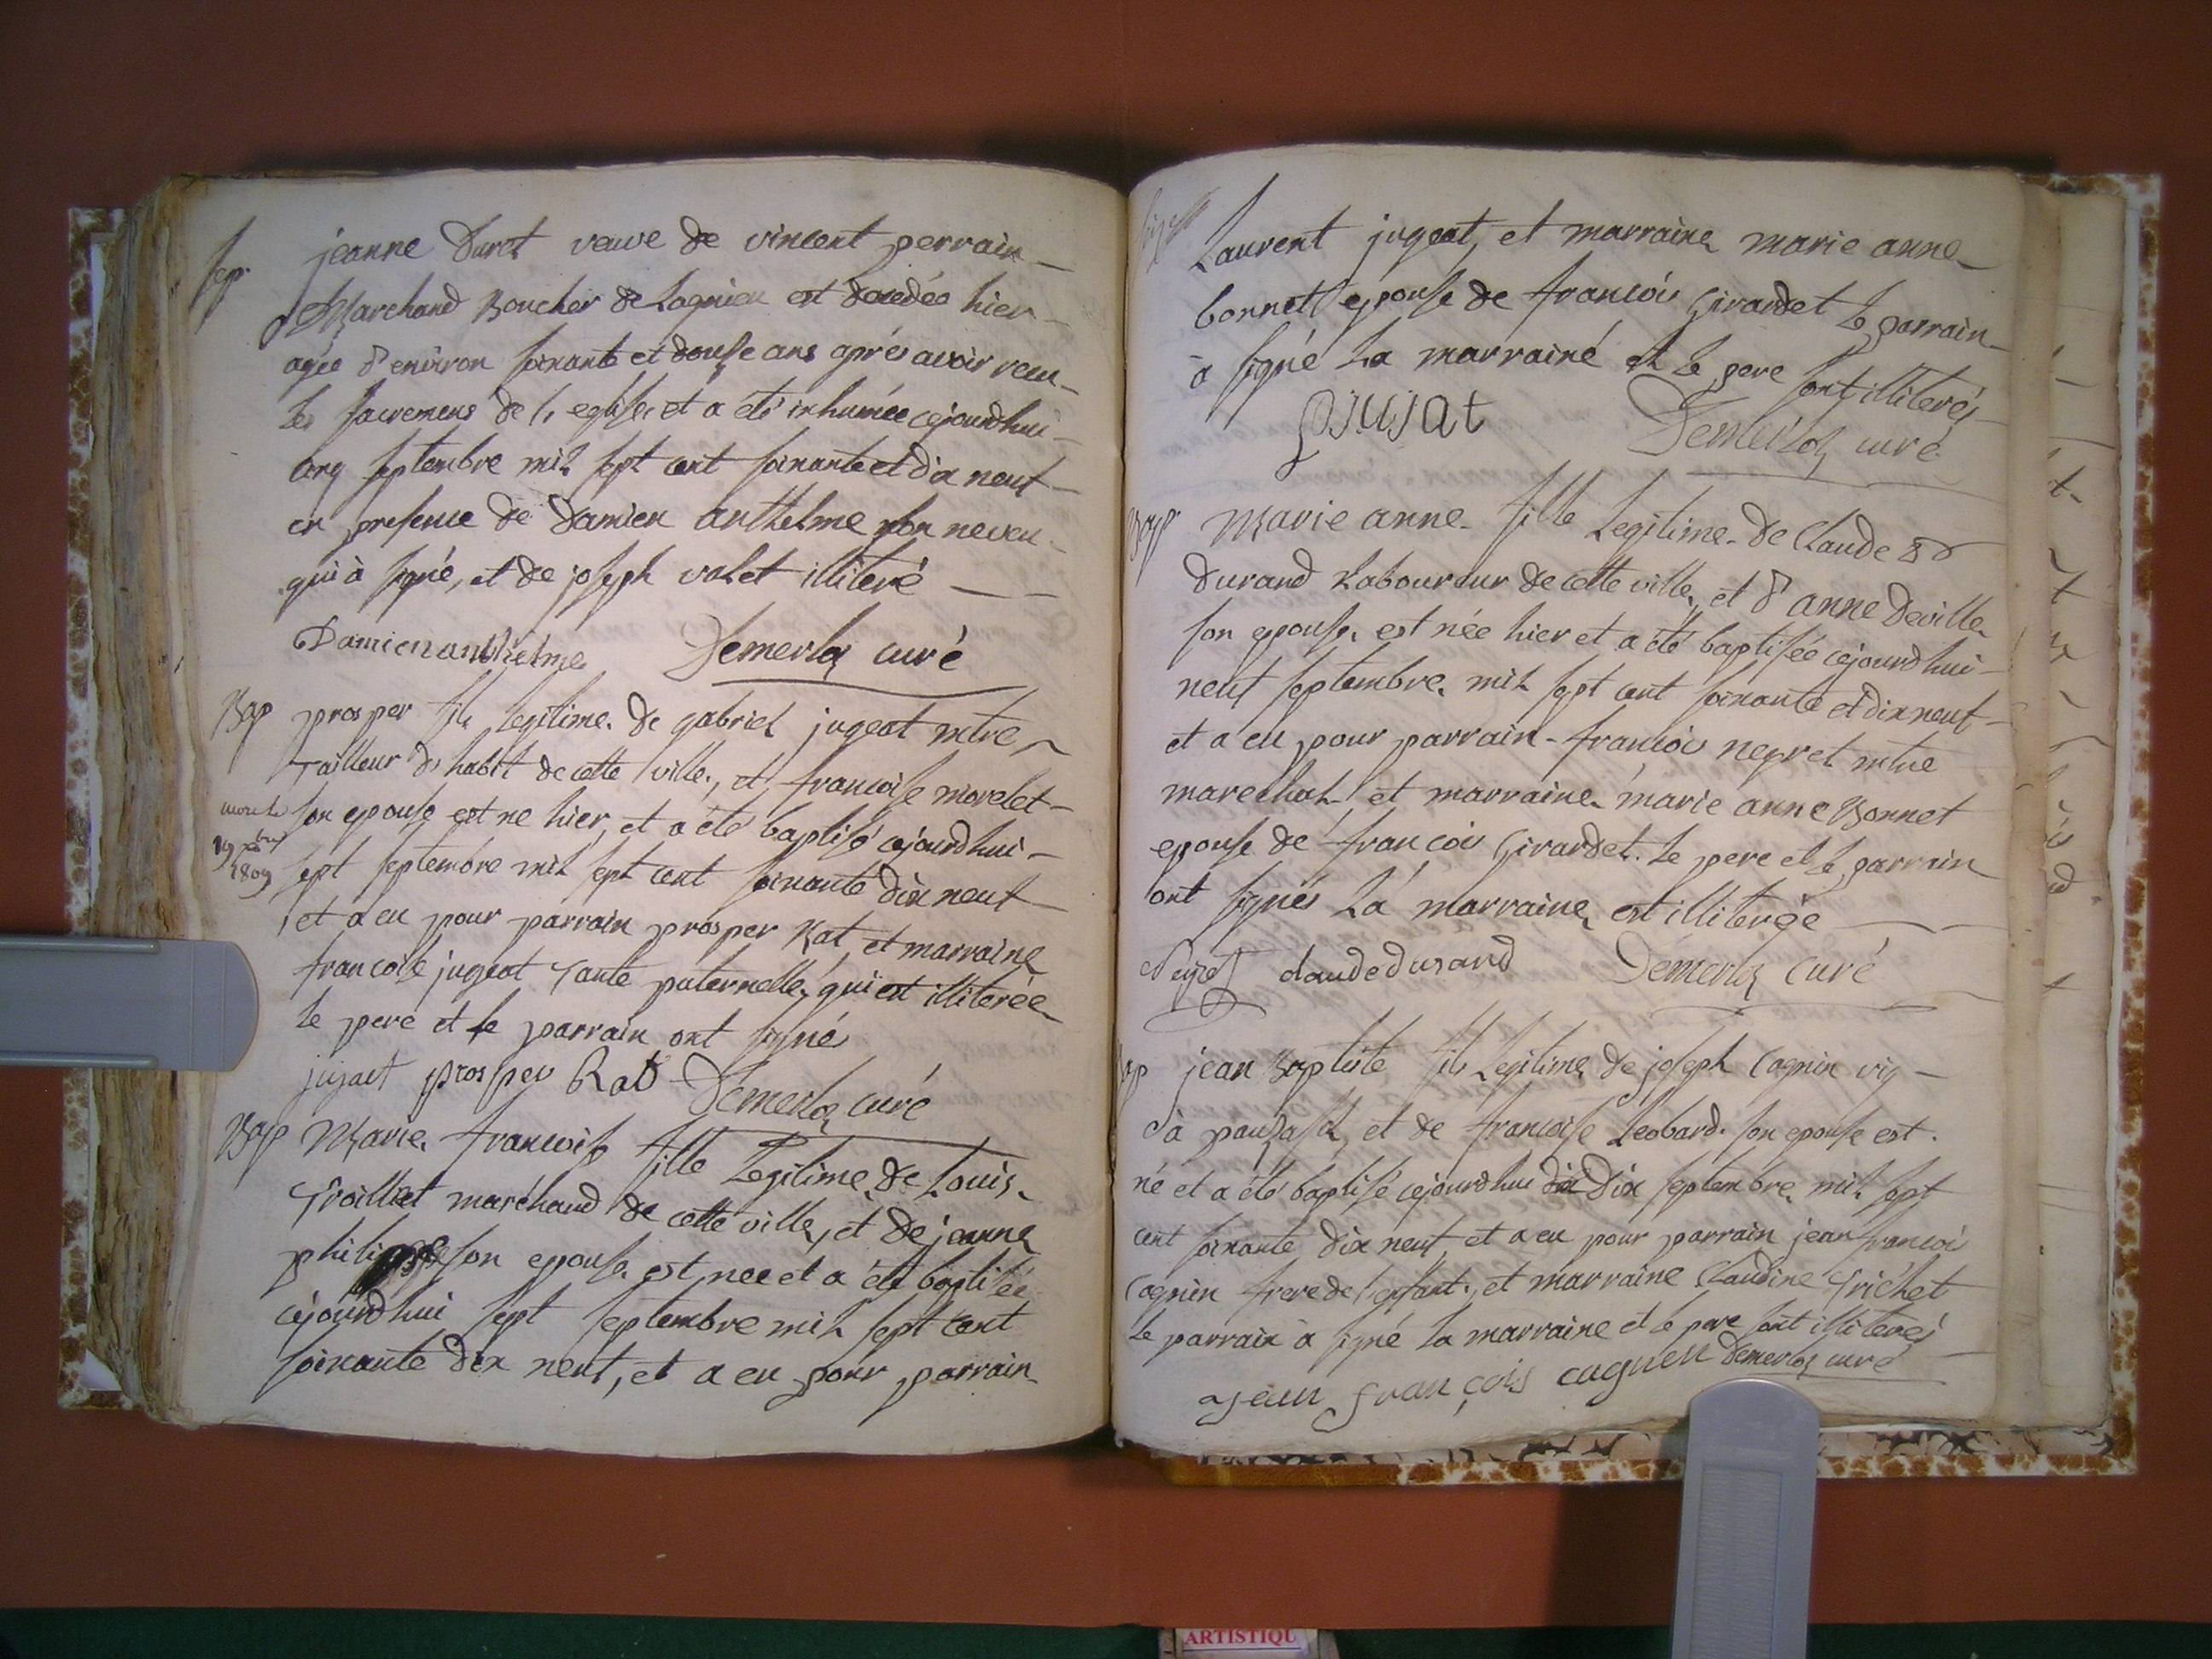 sep. jeanne Duret veuve de vincent perrain
Marchand Boucher de Lagnieu est decedée hier
agée d'environ soixante et douse ans aprés avoir recu
les sacremens de l'eglise, et a été inhumée cejourdhui
cinq septembre mil sept cent soixante et dix neuf
en presence de Damien anthelme son neveu
qui à signé, et de joseph volet illiteré
Damien anthelme Demerloz curé
Bap prosper fils legitime de gabriel jugeat mtre
Tailleur d'habit de cette ville, et francoise morelet
son epouse est ne hier, et a été baptisé cejourdhui
mort le
19
1809
sept septembre mil sept cent soixante dix neuf
et a eu pour parrain prosper Rat, et marraine
francoise jugeat tante paternelle, qui est illiterée
le pere et le parrain ont signés
jujact prosper Rat Demerloz curé
Bap Marie francoise fille Legitime de Louis
Troilliet marchand de cette ville, et de jeanne
philippe son epouse est nee et a été baptisée
cejourdhui sept septembre mil sept cent
soixante dix neuf, et a eu pour parrain
Laurent jugeat, et marraine marie anne
bonnet epouse de francois Girardet le parrain
à signé La marrainé et le pere sont illiterés
jujat Demerloz curé
Bap Marie anne fille Legitime de Claude
Durand Laboureur de cette ville, et d'anne Deville
son epouse, est née hier et a été baptisée cejourdhui
neuf septembre mil sept cent soixante et dix neuf
et a eu pour parrain francois negret mtre
marechal et marraine marie anne Bonnet
epouse de francois Girardet. le pere et le parrain
ont signés La marraine est illiterée
claude durand Demerloz curé
Bap jean Baptiste fils Legitime de joseph Cagnin vig
à et de francoise Leobard son epouse est
né et a été baptisé cejourdhui dix Dix septembre mil sept
cent soixante dix neuf, et a eu pour parrain jean francois
Cagnin frere de l'enfant, et marraine Claudine Trichet
le parrain à signé la marraine et le pere sont illiterés
jean françois cagnen Demerloz curé
ARTISTIQU